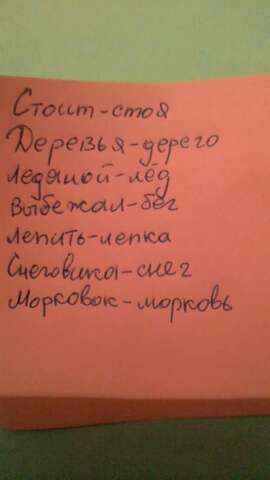 Стоит-стоя
Деревья-дерего
Ледяной-лёд
Выбежал-бег
лепить-лепка
Снеговика-снег
Морковок-морковь